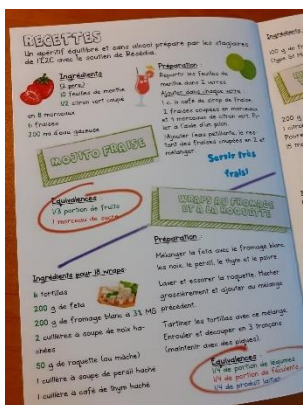 RECETTES
Un apéritif équilibre et sans alcool préparé par les stagiaires
de l'E2C avec le soutien de Résédia.
Ingrédients
(2 pers)
10 feuilles de menthe
1/2 citron vert coupé
en 8 morceaux
6 fraises
200 ml d'eau gazeuse
Préparation :
Répartir les feuilles de
menthe dans 2 verres.
Ajouter dans chaque verre :
1 c. à café de sirop de fraise
2 fraises coupées en morceaux
et 4 morceaux de citron vert. Pi-
ler à l'aide d'un pilon.
Ajouter l'eau pétillante, le res-
tant des fraises coupées en 2 et
mélanger
Servir très
frais!
MOJITO FRAISE
Equivalences
1/3 portion de fruits
1 morceau de sucre
WRAPS AU FROMAGE
ET À LA ROQUETTE
Ingrédients pour 18 wraps
6 tortillas
200 g de feta
200 g de fromage blanc à 3% MG
2 cuillères à soupe de noix ha-
chées
50 g de roquette (ou mâche)
1 cuillère à soupe de persil haché
1 cuillère à café de thym haché
Préparation :
Mélanger la feta avec le fromage blanc,
les noix, le persil, le thym et le poivre
Laver et essorer la roquette. Hacher
grossièrement et ajouter au mélange
précédent.
Tartiner les tortillas avec ce mélange.
Enrouler et découper en 3 tronçons
(maintenir avec des piques).
Equivalences :
1/4 de portion de légumes
1/4 de portion de féculents
1/4 de produit laitier
Ingrédients
100 g de
200 g